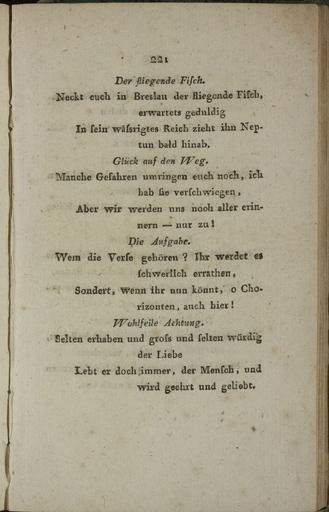 221
Der fliegende Fiſch.
Neckt euch in Breslau der fliegende Fiſch,
erwartets geduldig
In ſein wäſsrigtes Reich zieht ihn Nep-
tun bald hinab.
Glück auf den Weg.
Manche Gefahren umringen euch noch, ich
hab ſie verſchwiegen,
Aber wir werden uns noch aller erin-
nern — nur zu!
Die Aufgabe.
Wem die Verſe gehören? Ihr werdet es
ſchwerlich errathen,
Sondert, wenn ihr nun könnt, o Cho-
rizonten, auch hier!
Wohlfeile Achtung.
Selten erhaben und groſs und ſelten würdig
der Liebe
Lebt er doch immer, der Menſch, und
wird geehrt und geliebt.